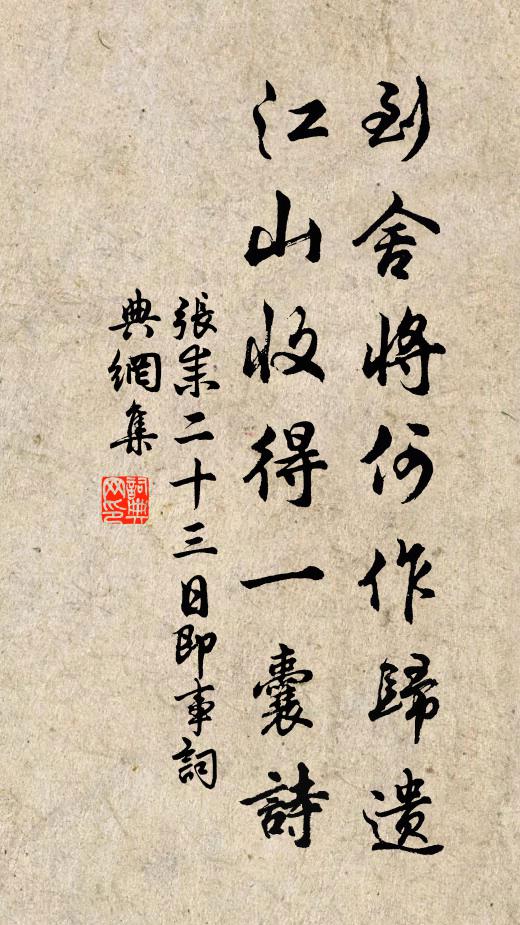 到舍將何作歸遺
江山收得一囊詩
張耒二十三日即事詞
典網集
詞典網印